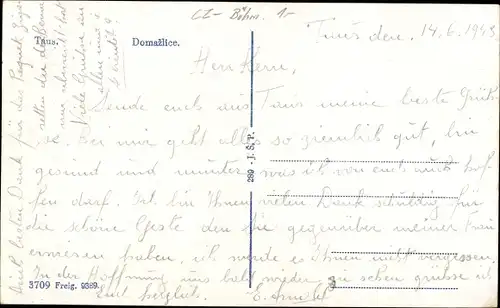 CZ- Böhm. 1.-
Taus.
Domažlice.
Taus den, 14.6.1943
Herr Kern,
Sende euch aus Taus meine beste Grüße
Bei mir geht alles so ziemlich gut, bin
gesund und munter was ich von euch auch hof-
fen darf. Ich bin Ihnen vielen Dank schuldig für
die schöne Geste den Sie gegenüber meiner Frau
erwiesen haben, ich werde es Ihnen nicht vergessen.
In der Hoffnung uns bald wieder zu sehen grüsse ich
Euch herzlich.
Auch besten Dank für das Paquet Ziga-
retten
Viele Grüsse an
289 - J. Š. P.
3709 Freig. 9389.